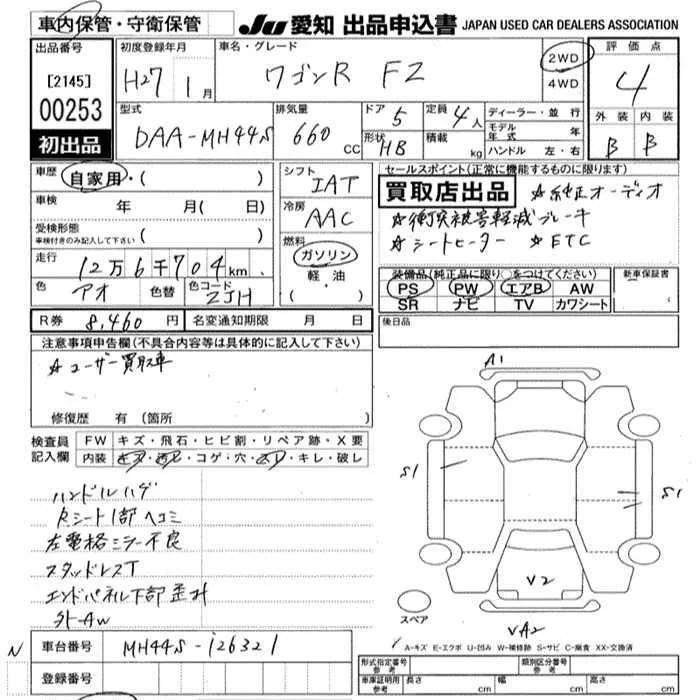 車内保管・守衛保管
JU 愛知 出品申込書 JAPAN USED CAR DEALERS ASSOCIATION
出品番号
[2145]
00253
初出品
初度登録年月
H27 1月
車名・グレード
ワゴンR FZ
2WD
4WD
評価点
4
外装 内装
B B
型式
DAA-MH44S
排気量
660 CC
ドア 5
形状 HB
定員 4人
積載 kg
ディーラー・並行
モデル年式 年
ハンドル 左・右
車歴
自家用・( )
車検 年 月( 日)
受検形態
車検付きのみ記入して下さい ( )
走行
12万6千704km
色 アオ 色替 色コード ZJH
R券 8,460円 名変通知期限 月 日
シフト
IAT
冷房
AAC
燃料
ガソリン
軽・油
( )
セールスポイント(正常に機能するものに限ります)
買取店出品 ☆純正オーディオ
☆衝突被害軽減ブレーキ
☆シートヒーター ☆ETC
装備品(純正品に限り○をつけてください) 新車保証書
PS PW エアB AW
SR ナビ TV カワシート
後日品
注意事項申告欄(不具合内容等は具体的に記入して下さい)
☆ユーザー買取車
修復歴 有(箇所 )
検査員記入欄
FW キズ・飛石・ヒビ割・リペア跡・X要
内装 キズ・汚レ・コゲ・穴・ スレ・キレ・破レ
ハンドルハゲ
Rシート1部ヘコミ
左電格ミラー不良
スタッドレスT
エンドパネル下部歪み
外AW
A1
S1
S1
V2
VA2
スペア
A-キズ E-エクボ U-凹み W-補修跡 S-サビ C-腐食 XX-交換済
N
車台番号 MH44S-126321
登録番号
形式指定番号 参考
類別区分番号 参考
車庫証明用 参考 長さ cm 幅 cm 高さ cm